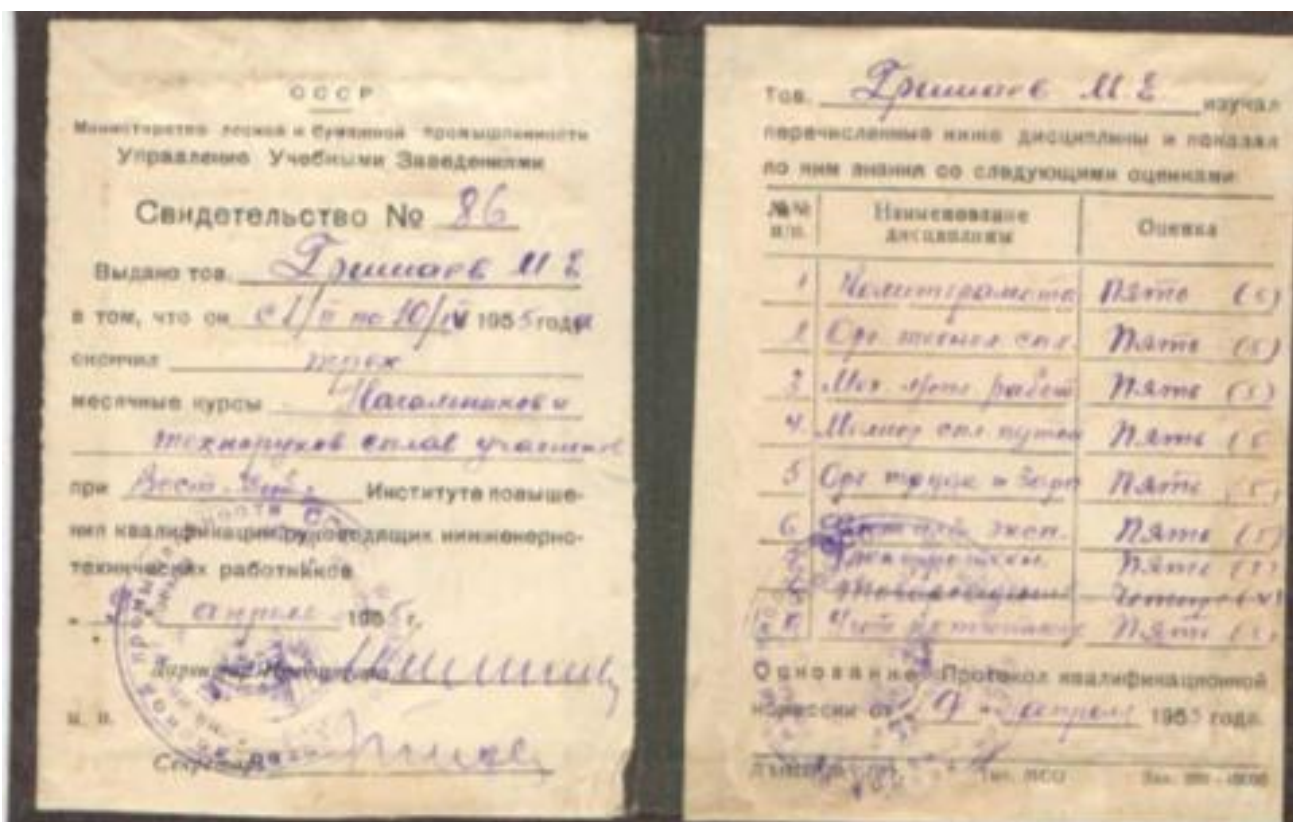 СССР
Министерство лесной и бумажной промышленности
Управление Учебными Заведениями
Свидетельство № 86
Выдано тов. Гришаев М Е
в том, что он с 1/II по 10/IV 1955 года
окончил трех
месячные курсы Начальников и
техноруков сплав участков
при Института повыше-
ния квалификации руководящих инженерно-
технических работников
апреля 1955 г.
Директор Института
М. П.
Секретарь
Тов. Гришаев М. Е. изучал
перечисленные ниже дисциплины и показал
по ним знания со следующими оценками:
№№ п/п. Наименование дисциплины Оценка
1 Политграмота Пять (5)
2 Орг. технол спл. Пять (5)
3 Мех. работ Пять (5)
4 Мелиор спл. путей Пять (5
5 Орг труда и зарп Пять (5)
6 эксп. Пять (5)
7 Пять (5)
8 Товароведение Четыре (4)
Учет Пять (5)
Основание Протокол квалификационной
комиссии от 9 апреля 1955 года.